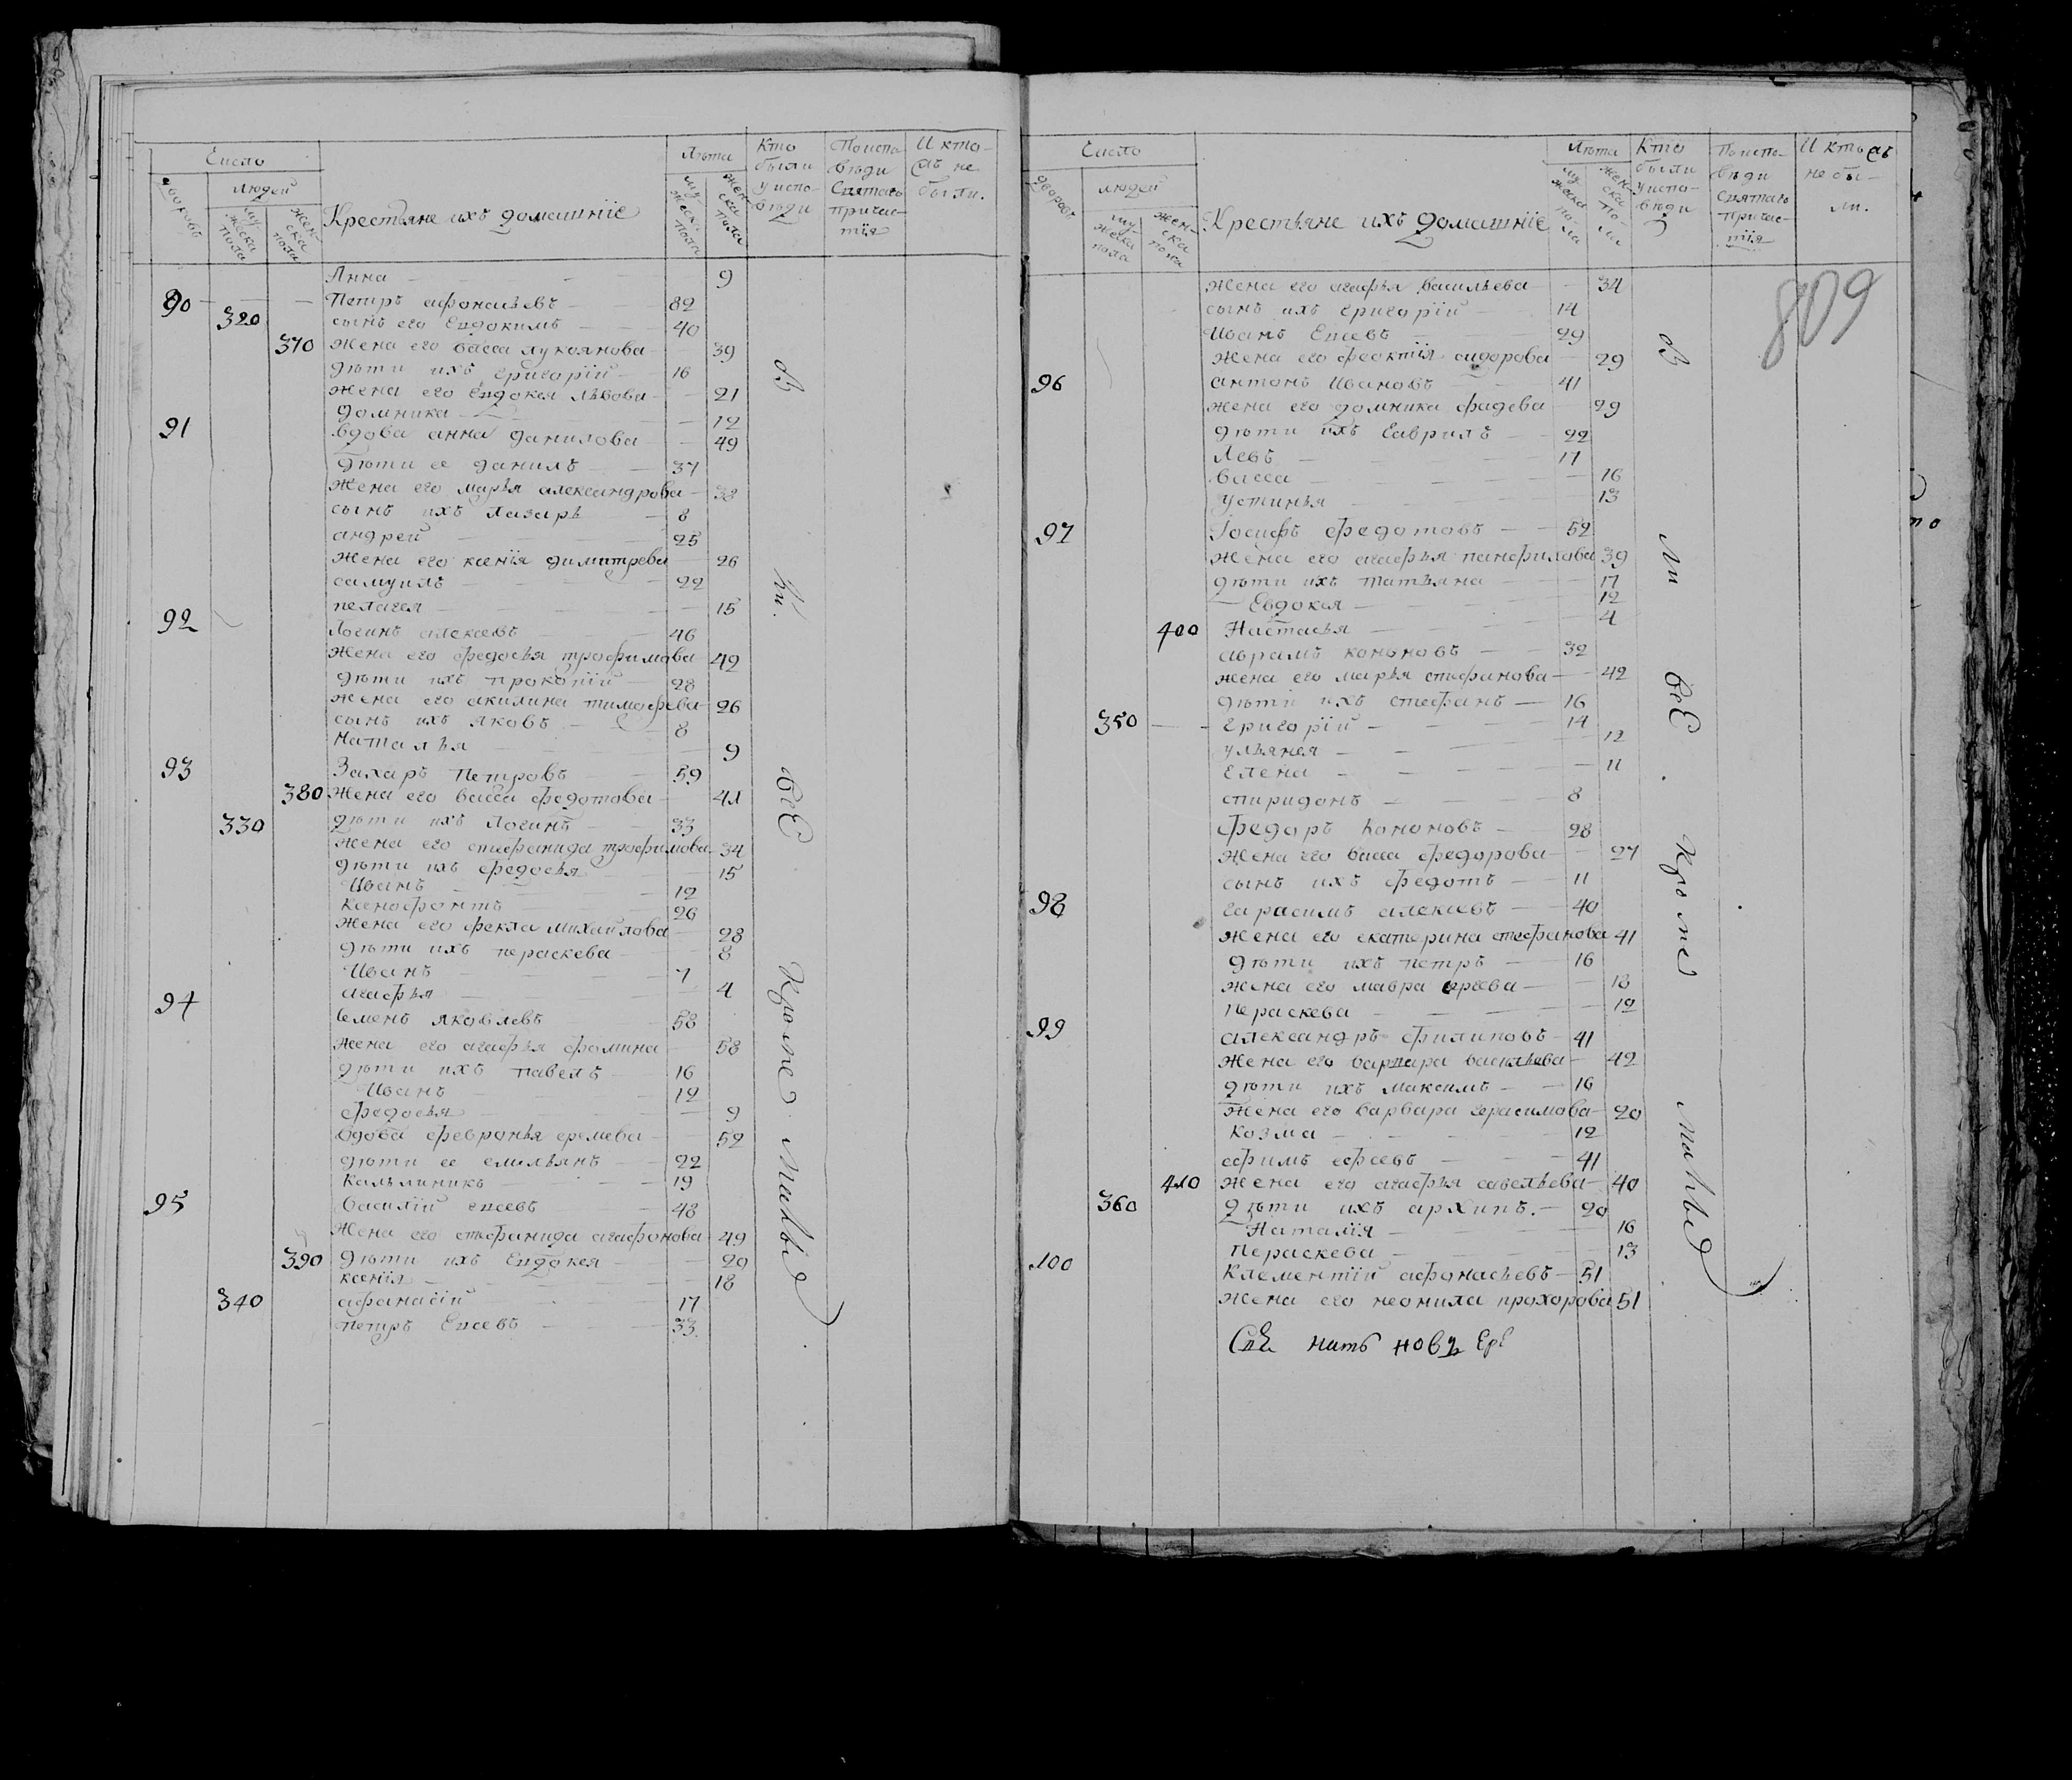 Число
людей
дворовъ
мужеска пола
женска пола
Крестьяне ихъ домашніе
Лѣта
мужеска пола
женска пола
Кто были у исповѣди
По исповѣди Святаго причастія
И кто не были.
Анна 9
90 Петръ афонасьевъ 82
320 сынъ его Евдокимъ 40
370 жена его васса лукоянова 39
дѣти ихъ григорій 16
жена его Евдокея львова 21
домника 12
91 вдова анна данилова 49
дѣти ее данилъ 37
жена его марья александрова 38
сынъ ихъ лазарь 8
андрей 25
жена его ксенія димитрева 26
самуилъ 22
пелагея 15
92 Логинъ алексевъ 46
жена его федосья трофимова 42
дѣти ихъ прокопій 28
жена его акилина тимофева 26
сынъ ихъ яковъ 8
наталья 9
93 Захаръ петровъ 59
380 жена его васса федотова 41
330 дѣти ихъ логинъ 33
жена его стефанида трофимова 34
дѣти ихъ федосья 15
Иванъ 12
Ксенофонтъ 26
жена его фекла михайлова 28
дѣти ихъ пераскева 8
Иванъ 7
агафья 4
94 Семенъ яковлевъ 58
жена его агафья фомина 58
дѣти ихъ павелъ 16
Иванъ 12
федосья 9
вдова февронья еремева 52
дѣти ее емильянъ 22
Кальлиникъ 19
95 василій евсевъ 48
жена его стефанида агафонова 49
390 дѣти ихъ Евдокея 20
ксенія 18
340 афанасій 17
петръ Евсевъ 33
Всѣ Кромѣ
Число
людей
дворовъ
мужеска пола
женска пола
Крестьяне ихъ домашніе
Лѣта
мужеска пола
женска пола
Кто были у исповѣди
По исповѣди Святаго причастія
И кто не были.
809
жена его агафья васильева 34
сынъ ихъ григорій 14
Иванъ Евсевъ 29
жена его феоктія сидорова 29
96 антонъ Ивановъ 41
жена его домника фадева 29
дѣти ихъ Гаврилъ 22
Левъ 17
васса 16
устинья 13
97 Іосифъ федотовъ 52
жена его агафья панфилова 39
дѣти ихъ татьяна 17
Евдокея 12
400 Настасья 4
аврамъ кононовъ 32
жена его марья стефанова 42
дѣти ихъ стефанъ 16
350 григорій 14
ульянея 12
Елена 11
спиридонъ 8
федоръ кононовъ 28
жена его васса федорова 27
сынъ ихъ федотъ 11
98 гарасимъ алексевъ 40
жена его екатерина стефанова 41
дѣти ихъ петръ 16
жена его мавра 18
пераскева 12
99 александръ филиповъ 41
жена его варвара васильева 42
дѣти ихъ максимъ 16
жена его варвара герасимова 20
Козма 12
ефимъ ефсевъ 41
410 жена его агафья савельева 40
360 дѣти ихъ архипъ. 20
Наталія 16
пераскева 13
100 Клементій афонасьевъ 51
жена его неонила прохорова 51
Всѣ Кромѣ